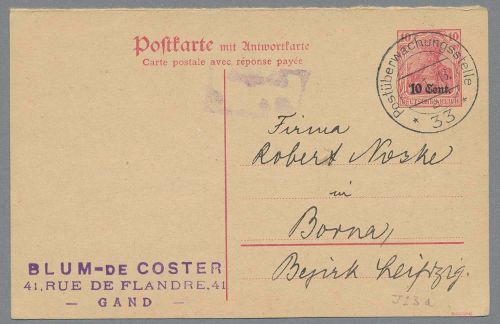 Postkarte mit Antwortkarte
Carte postale avec réponse payée
10 10
10 Cent.
DEUTSCHES REICH
Postüberwachungsstelle
* 33 *
Firma
Robert Noske
in
Borna,
Bezirk Leipzig.
BLUM-DE COSTER
41, RUE DE FLANDRE, 41
— GAND —
J13a